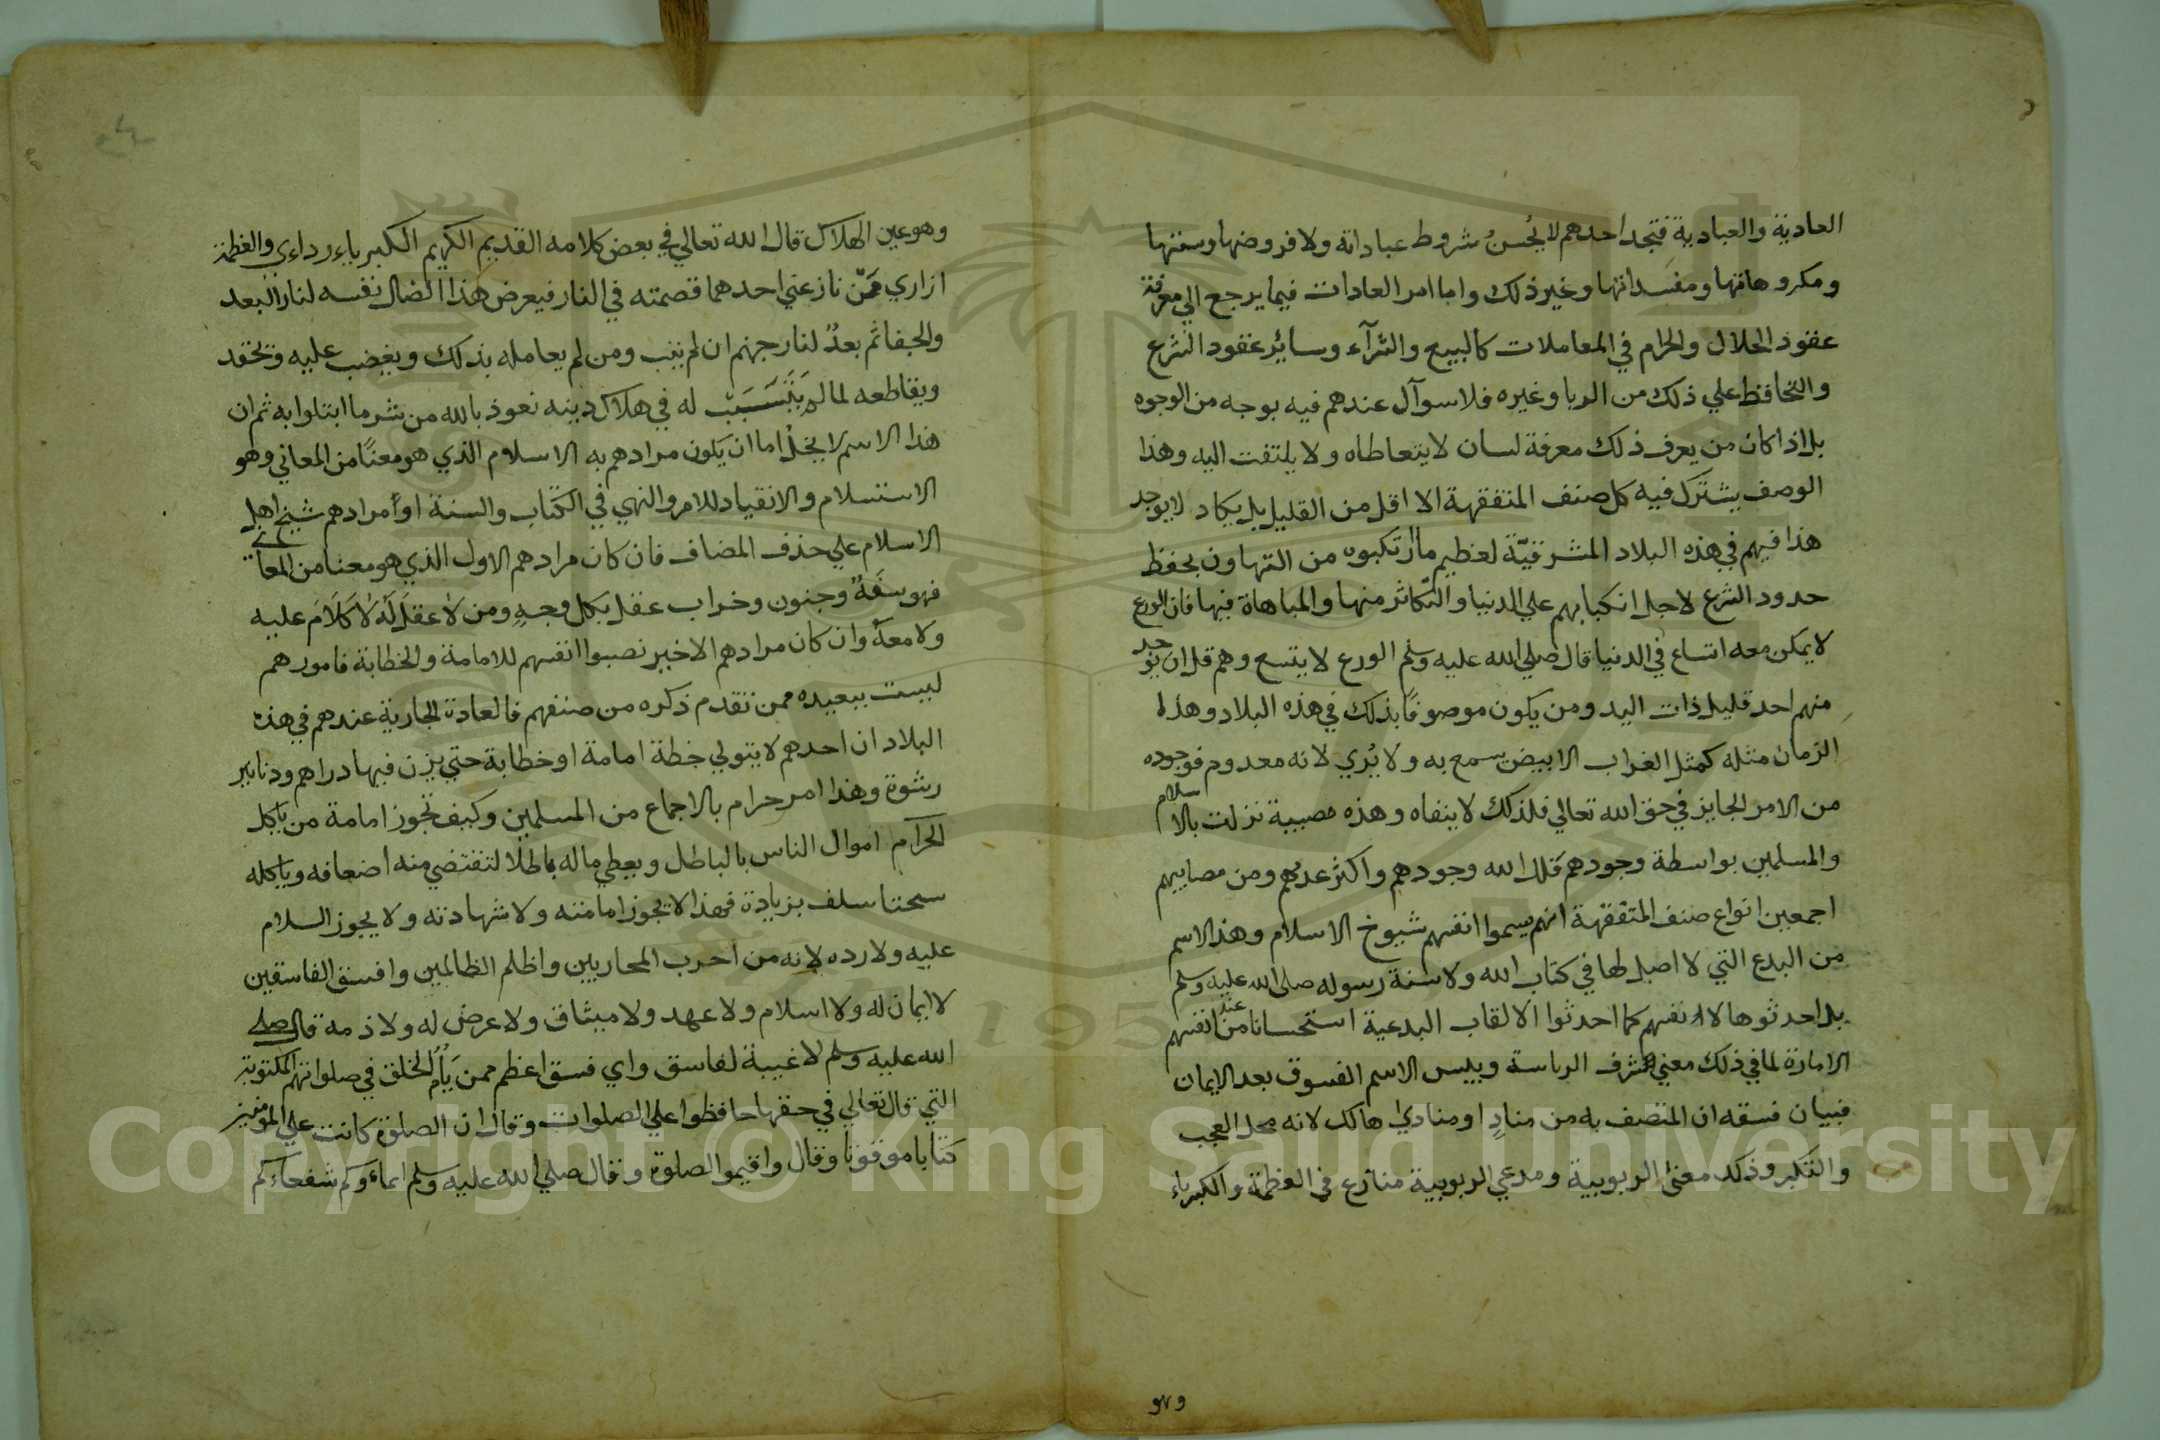 العادية والعبادية فتجد احدهم لا يحسنُ شروط عباداته ولا فروضها وسننها
ومكروهاتها ومفسداتها وغير ذلك واما امر العادات فيما يرجع الي معرفة
عقود الحلال والحرام في المعاملات كالبيع والشرآء وسائر عقود الشرع
والتحافظ علي ذلك من الربا وغيره فلا سوآل عندهم فيه بوجه من الوجوه
بل اذا كان من يعرف ذلك معرفة لسان لا يتعاطاه ولا يلتفت اليه وهذا
الوصف يشترك فيه كل صنف المتفقهة الا اقل من القليل بل يكاد لا يوجد
هذا فيهم في هذه البلاد المشرقيّة لعظيم ما ارتكبوه من التهاون بحفظ
حدود الشرع لاجل انكبابهم علي الدنيا والتّكاثر منها والمباهاة فيها فان الورع
لا يمكن معه اتساع في الدنيا قال صلي الله عليه وسلم الورع لا يتسع وهم قل ان يوجد
منهم احد قليل ذات اليد ومن يكون موصوفًا بذلك في هذه البلاد وهذا
الزمان مثله كمثل الغراب الابيض يسمع به ولا يُري لانه معدوم فوجوده
من الامر الجايز في حق الله تعالي فلذلك لا ينفاه وهذه مصيبة نزلت بالاسلام
والمسلمين بواسطة وجودهم قلل الله وجودهم واكثر عدمهم ومن مصايبهم
اجمعين انواع صنف المتفقهة انهم يسموا انفسهم شيوخ الاسلام وهذا الاسم
من البدع التي لا اصل لها في كتاب الله ولا سنة رسوله صلي الله عليه وسلم
بل احدثوها لانفسهم كما احدثوا الالقاب البدعية استحسانا من عند انفسهم
الامارة لما في ذلك معني شرف الرياسة وبيس الاسم الفسوق بعد الايمان
فبيان فسقه ان المتصف به من منادٍ او منادي هالك لانه محل العجب
والتكبر وذلك معني الربوبية ومدعي الربوبية منازع في العظمة والكبرياء
وهو
وهو عين الهلاك قال الله تعالي في بعض كلامه القديم الكريم الكبرياء رداءي والعظمة
ازاري فمن نازعني احدهما قصمته في النار فيعرض هذا الضال نفسه لنار البعد
والجفا ثم بعدُ لنار جهنم ان لم يتب ومن لم يعامله بذلك ويغضب عليه ويحقد
ويقاطعه لما لم يَتَسَبَّب له في هلاك دينه نعوذ بالله من شر ما ابتلوا به ثم ان
هذا الاسم لا يخل اما ان يكون مرادهم به الاسلام الذي هو معنًا من المعاني وهو
الاستسلام والانقياد للامر والنهي في الكتاب والسنة او مرادهم شيخ اهل
الاسلام علي حذف المضاف فان كان مرادهم الاول الذي هو معنا من المعاني
فهو سفَهٌ وجنون وخراب عقل بكل وجهٍ ومن لا عقل لَه لا كَلَامَ عليه
ولا معه وان كان مرادهم الاخير نصبوا انفسهم للامامة والخطابة فامورهم
ليست ببعيده ممن تقدم ذكره من صنفهم فالعادة الجارية عندهم في هذه
البلاد ان احدهم لا يتولي خطة امامة او خطابة حتي يزن فيها دراهم ودنانير
رشوة وهذا امر حرام بالاجماع من المسلمين وكيف تجوز امامة من ياكل
الحرام اموال الناس بالباطل ويعطي ماله باطلا لتقتضي منه اضعافه وياكله
سحتا سلف بزيادة فهذا لا تجوز امامته ولا شهادته ولا يجوز السلام
عليه ولا رده لانه من احرب المحاربين واظلم الظالمين وافسق الفاسقين
لا ايمان له ولا اسلام ولا عهد ولا ميثاق ولا عرض له ولا ذمة قال صلي
الله عليه وسلم لا غيبة لفاسق واي فسق اعظم ممن يَأُمُّ الخلق في صلواتهم المكتوبة
التي قال تعالي في حقها حافظوا علي الصلوات وقال ان الصلوة كانت علي المؤمنين
كتابا موقوتا وقال واقيموا الصلوة وقال صلي الله عليه وسلم ايماؤكم شفعاءكم
Copyright © King Saud University
195